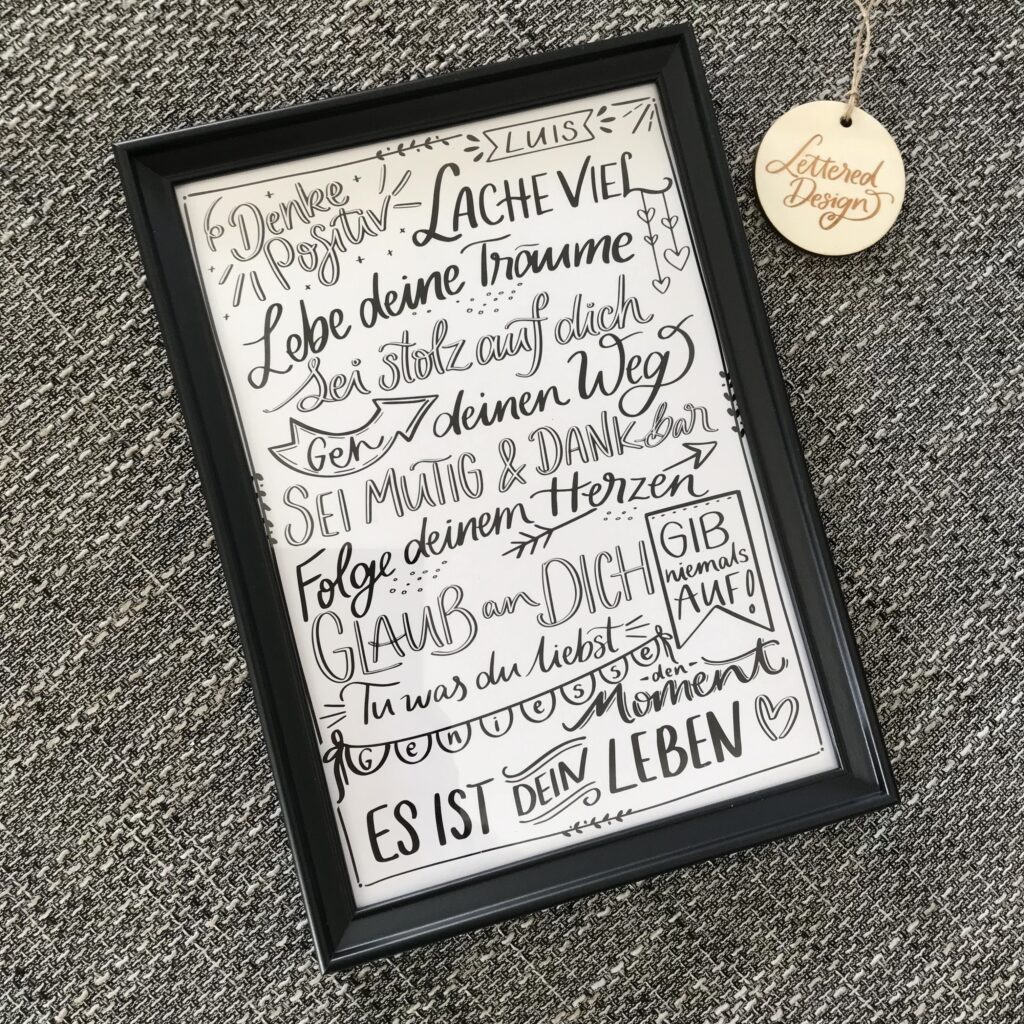 LUIS
Denke
Positiv
LACHE VIEL
Lebe deine Träume
Sei stolz auf dich
Geh deinen Weg
SEI MUTIG & DANKbar
Folge deinem Herzen
GLAUB an DICH
GIB
niemals
AUF!
Tu was du liebst
Geniesse
-den-
Moment
ES IST DEIN LEBEN
Lettered
Design